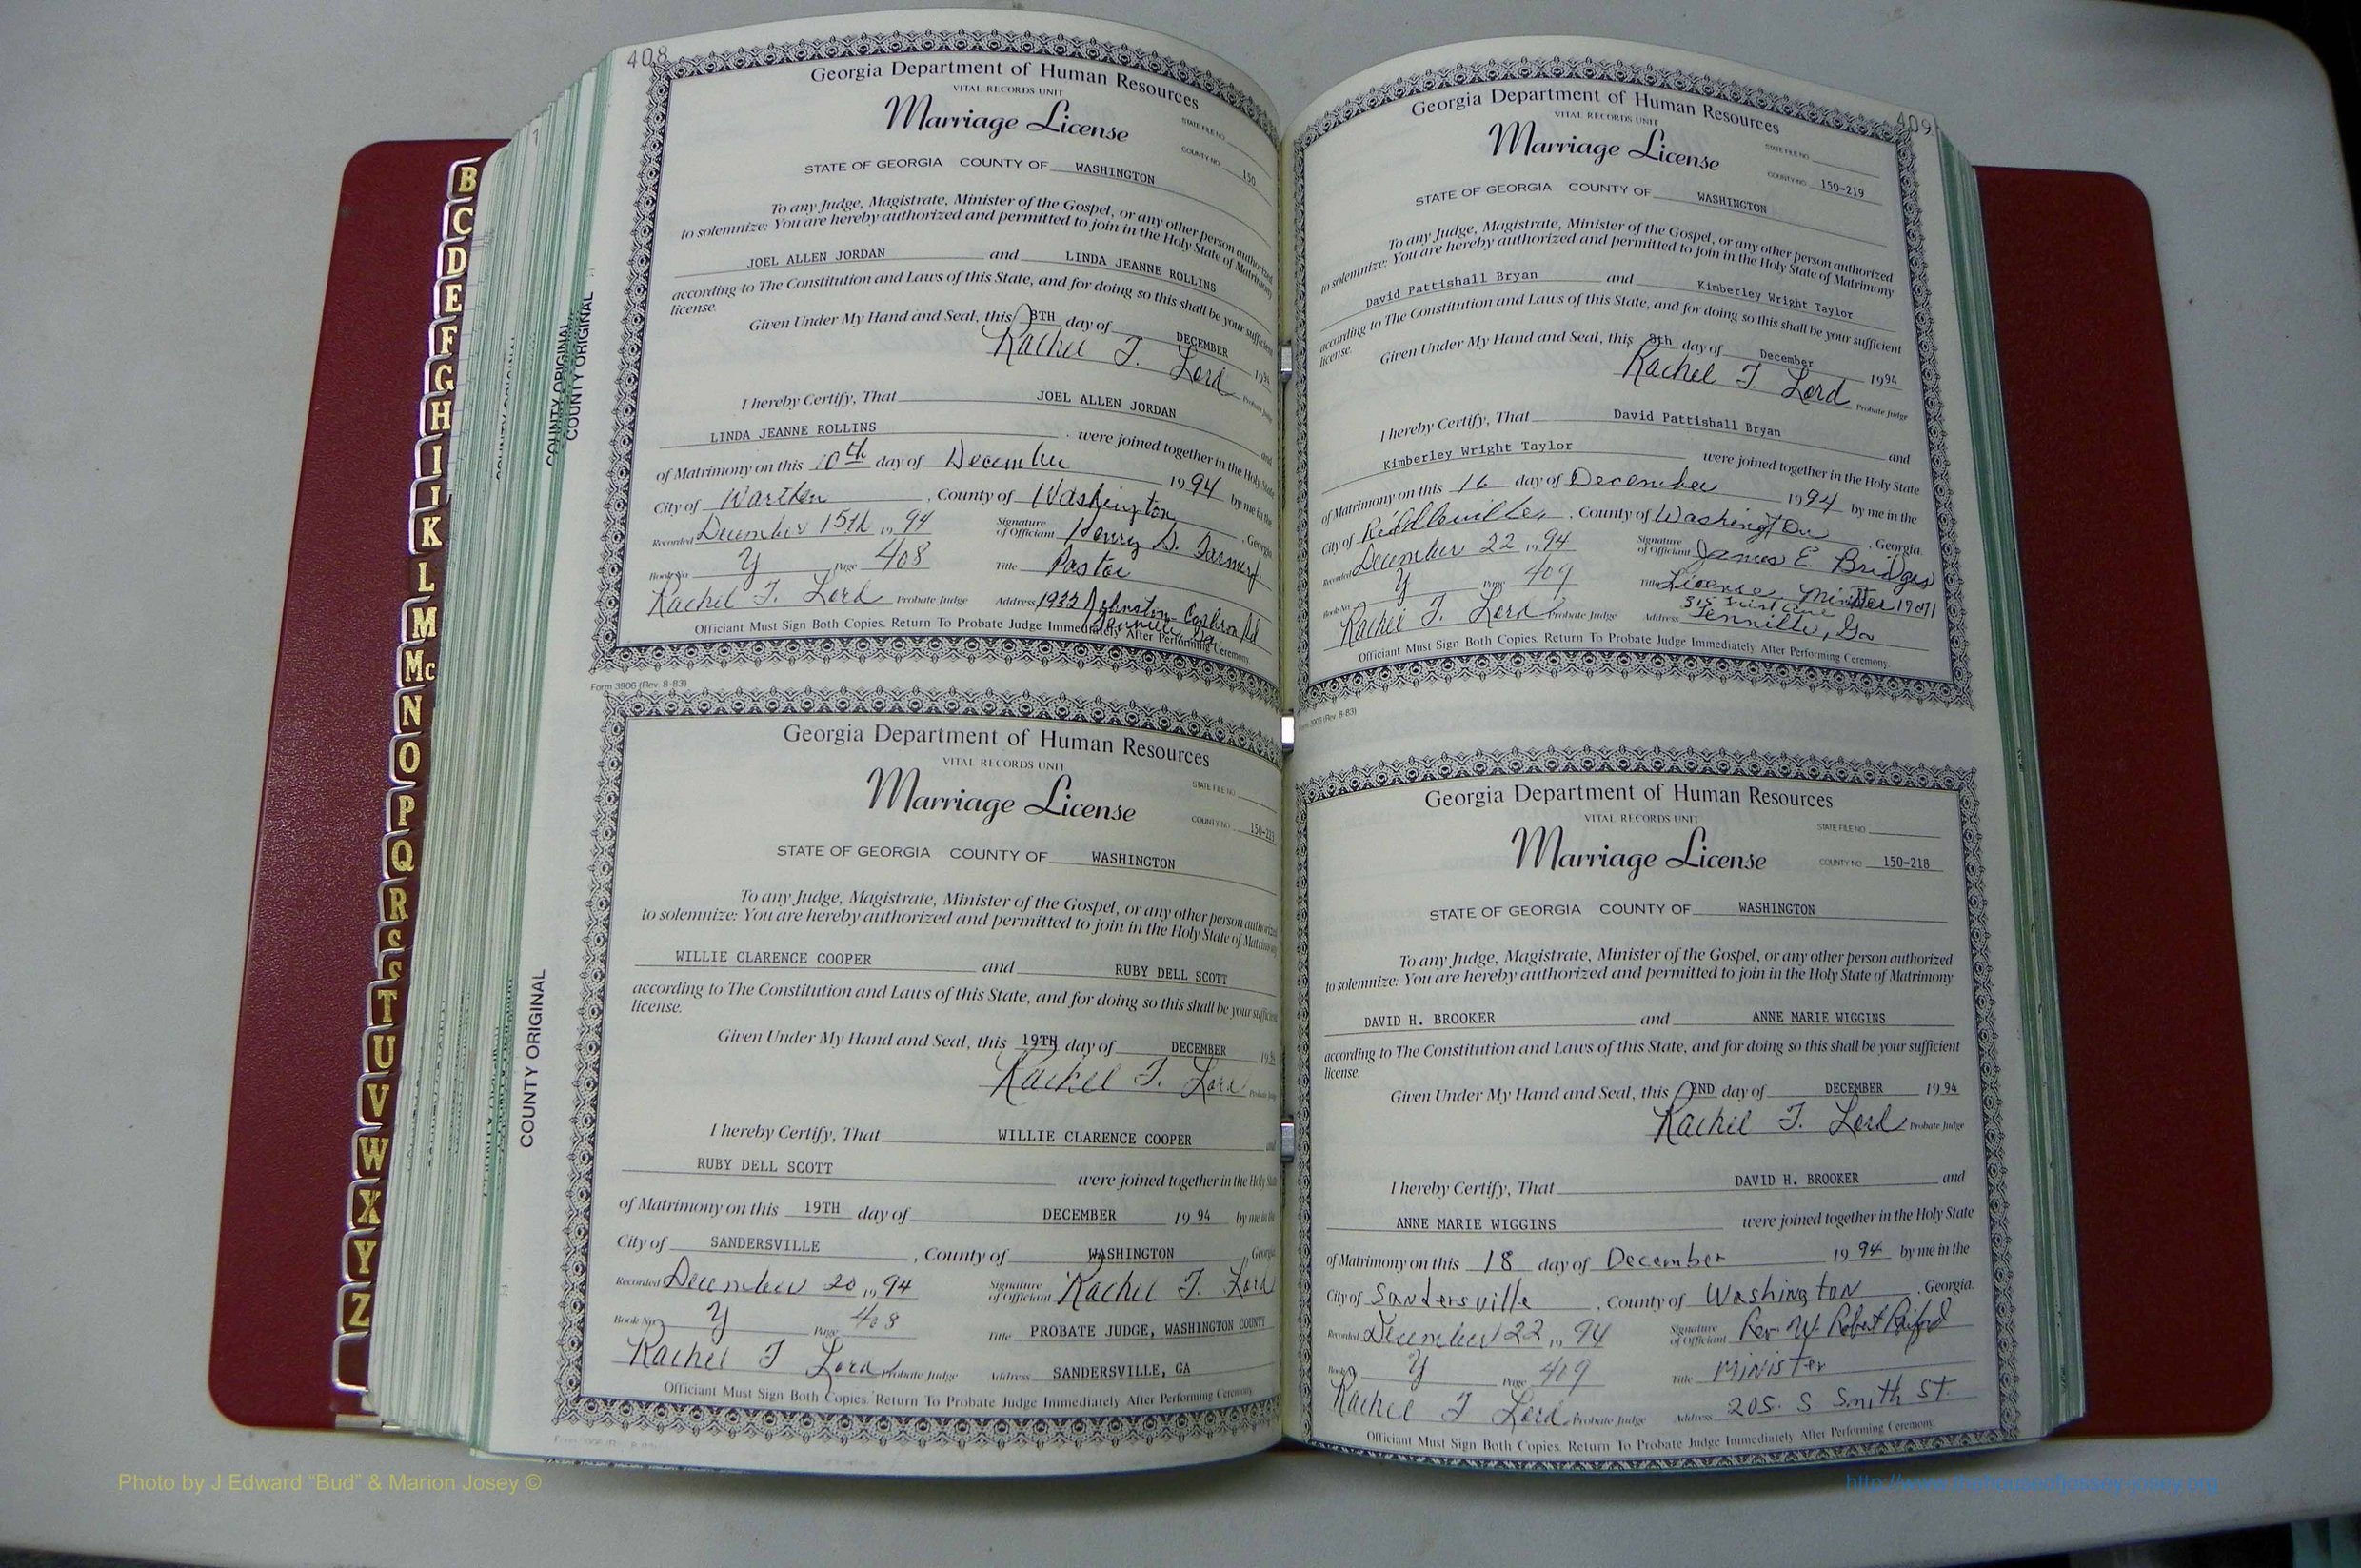 408
Georgia Department of Human Resources
VITAL RECORDS UNIT
Marriage License
STATE FILE NO.
COUNTY NO. 150
STATE OF GEORGIA COUNTY OF WASHINGTON
To any Judge, Magistrate, Minister of the Gospel, or any other person authorized
to solemnize: You are hereby authorized and permitted to join in the Holy State of Matrimony
JOEL ALLEN JORDAN and LINDA JEANNE ROLLINS
according to The Constitution and Laws of this State, and for doing so this shall be your sufficient
license.
Given Under My Hand and Seal, this 8TH day of DECEMBER 1994
Rachel T. Lord Probate Judge
I hereby Certify, That JOEL ALLEN JORDAN and
LINDA JEANNE ROLLINS were joined together in the Holy State
of Matrimony on this 10th day of December 1994 by me in the
City of Warthen, County of Washington, Georgia
Recorded December 15th, 1994 Signature of Officiant Henry D.
Book No. Y Page 408 Title Pastor
Rachel T. Lord Probate Judge Address 1932 Johnston
Officiant Must Sign Both Copies. Return To Probate Judge Immediately After Performing Ceremony.
Form 3906 (Rev. 8-83)
Georgia Department of Human Resources
VITAL RECORDS UNIT
Marriage License
STATE FILE NO.
COUNTY NO. 150-223
STATE OF GEORGIA COUNTY OF WASHINGTON
To any Judge, Magistrate, Minister of the Gospel, or any other person authorized
to solemnize: You are hereby authorized and permitted to join in the Holy State of Matrimony
WILLIE CLARENCE COOPER and RUBY DELL SCOTT
according to The Constitution and Laws of this State, and for doing so this shall be your sufficient
license.
Given Under My Hand and Seal, this 19TH day of DECEMBER 1994
Rachel T. Lord Probate Judge
I hereby Certify, That WILLIE CLARENCE COOPER and
RUBY DELL SCOTT were joined together in the Holy State
of Matrimony on this 19TH day of DECEMBER 19 94 by me in the
City of SANDERSVILLE, County of WASHINGTON, Georgia
Recorded December 20, 1994 Signature of Officiant Rachel T. Lord
Book No. Y Page 408 Title PROBATE JUDGE, WASHINGTON COUNTY
Rachel T Lord Probate Judge Address SANDERSVILLE, GA
Officiant Must Sign Both Copies. Return To Probate Judge Immediately After Performing Ceremony.
409
Georgia Department of Human Resources
VITAL RECORDS UNIT
Marriage License
STATE FILE NO.
COUNTY NO. 150-219
STATE OF GEORGIA COUNTY OF WASHINGTON
To any Judge, Magistrate, Minister of the Gospel, or any other person authorized
to solemnize: You are hereby authorized and permitted to join in the Holy State of Matrimony
David Pattishall Bryan and Kimberley Wright Taylor
according to The Constitution and Laws of this State, and for doing so this shall be your sufficient
license.
Given Under My Hand and Seal, this 8th day of December 1994
Rachel T. Lord Probate Judge
I hereby Certify, That David Pattishall Bryan and
Kimberley Wright Taylor were joined together in the Holy State
of Matrimony on this 16 day of December 1994 by me in the
City of Riddleville, County of Washington, Georgia.
Recorded December 22, 1994 Signature of Officiant James E. Bridges
Book No. Y Page 409 Title License Minister
Rachel T. Lord Probate Judge Address Tennille, Ga
Officiant Must Sign Both Copies. Return To Probate Judge Immediately After Performing Ceremony.
Form 3906 (Rev. 8-83)
Georgia Department of Human Resources
VITAL RECORDS UNIT
Marriage License
STATE FILE NO.
COUNTY NO. 150-218
STATE OF GEORGIA COUNTY OF WASHINGTON
To any Judge, Magistrate, Minister of the Gospel, or any other person authorized
to solemnize: You are hereby authorized and permitted to join in the Holy State of Matrimony
DAVID H. BROOKER and ANNE MARIE WIGGINS
according to The Constitution and Laws of this State, and for doing so this shall be your sufficient
license.
Given Under My Hand and Seal, this 2ND day of DECEMBER 1994
Rachel T. Lord Probate Judge
I hereby Certify, That DAVID H. BROOKER and
ANNE MARIE WIGGINS were joined together in the Holy State
of Matrimony on this 18 day of December 19 94 by me in the
City of Sandersville, County of Washington, Georgia.
Recorded December 22, 1994 Signature of Officiant Rev W. Robert Raiford
Book No. Y Page 409 Title Minister
Rachel T Lord Probate Judge Address 205. S Smith St.
Officiant Must Sign Both Copies. Return To Probate Judge Immediately After Performing Ceremony.
COUNTY ORIGINAL
COUNTY ORIGINAL
COUNTY ORIGINAL
B
C
D
E
F
G
H
I
J
K
L
M
Mc
N
O
P
Q
R
S
T
U
V
W
X
Y
Z
Photo by J Edward “Bud” & Marion Josey ©
http://www.thehouseofjossey-josey.org